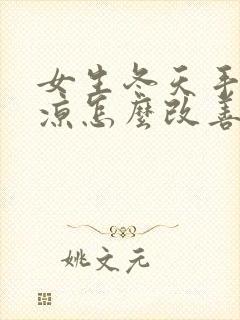 女生冬天手
凉怎麼改善
姚文元